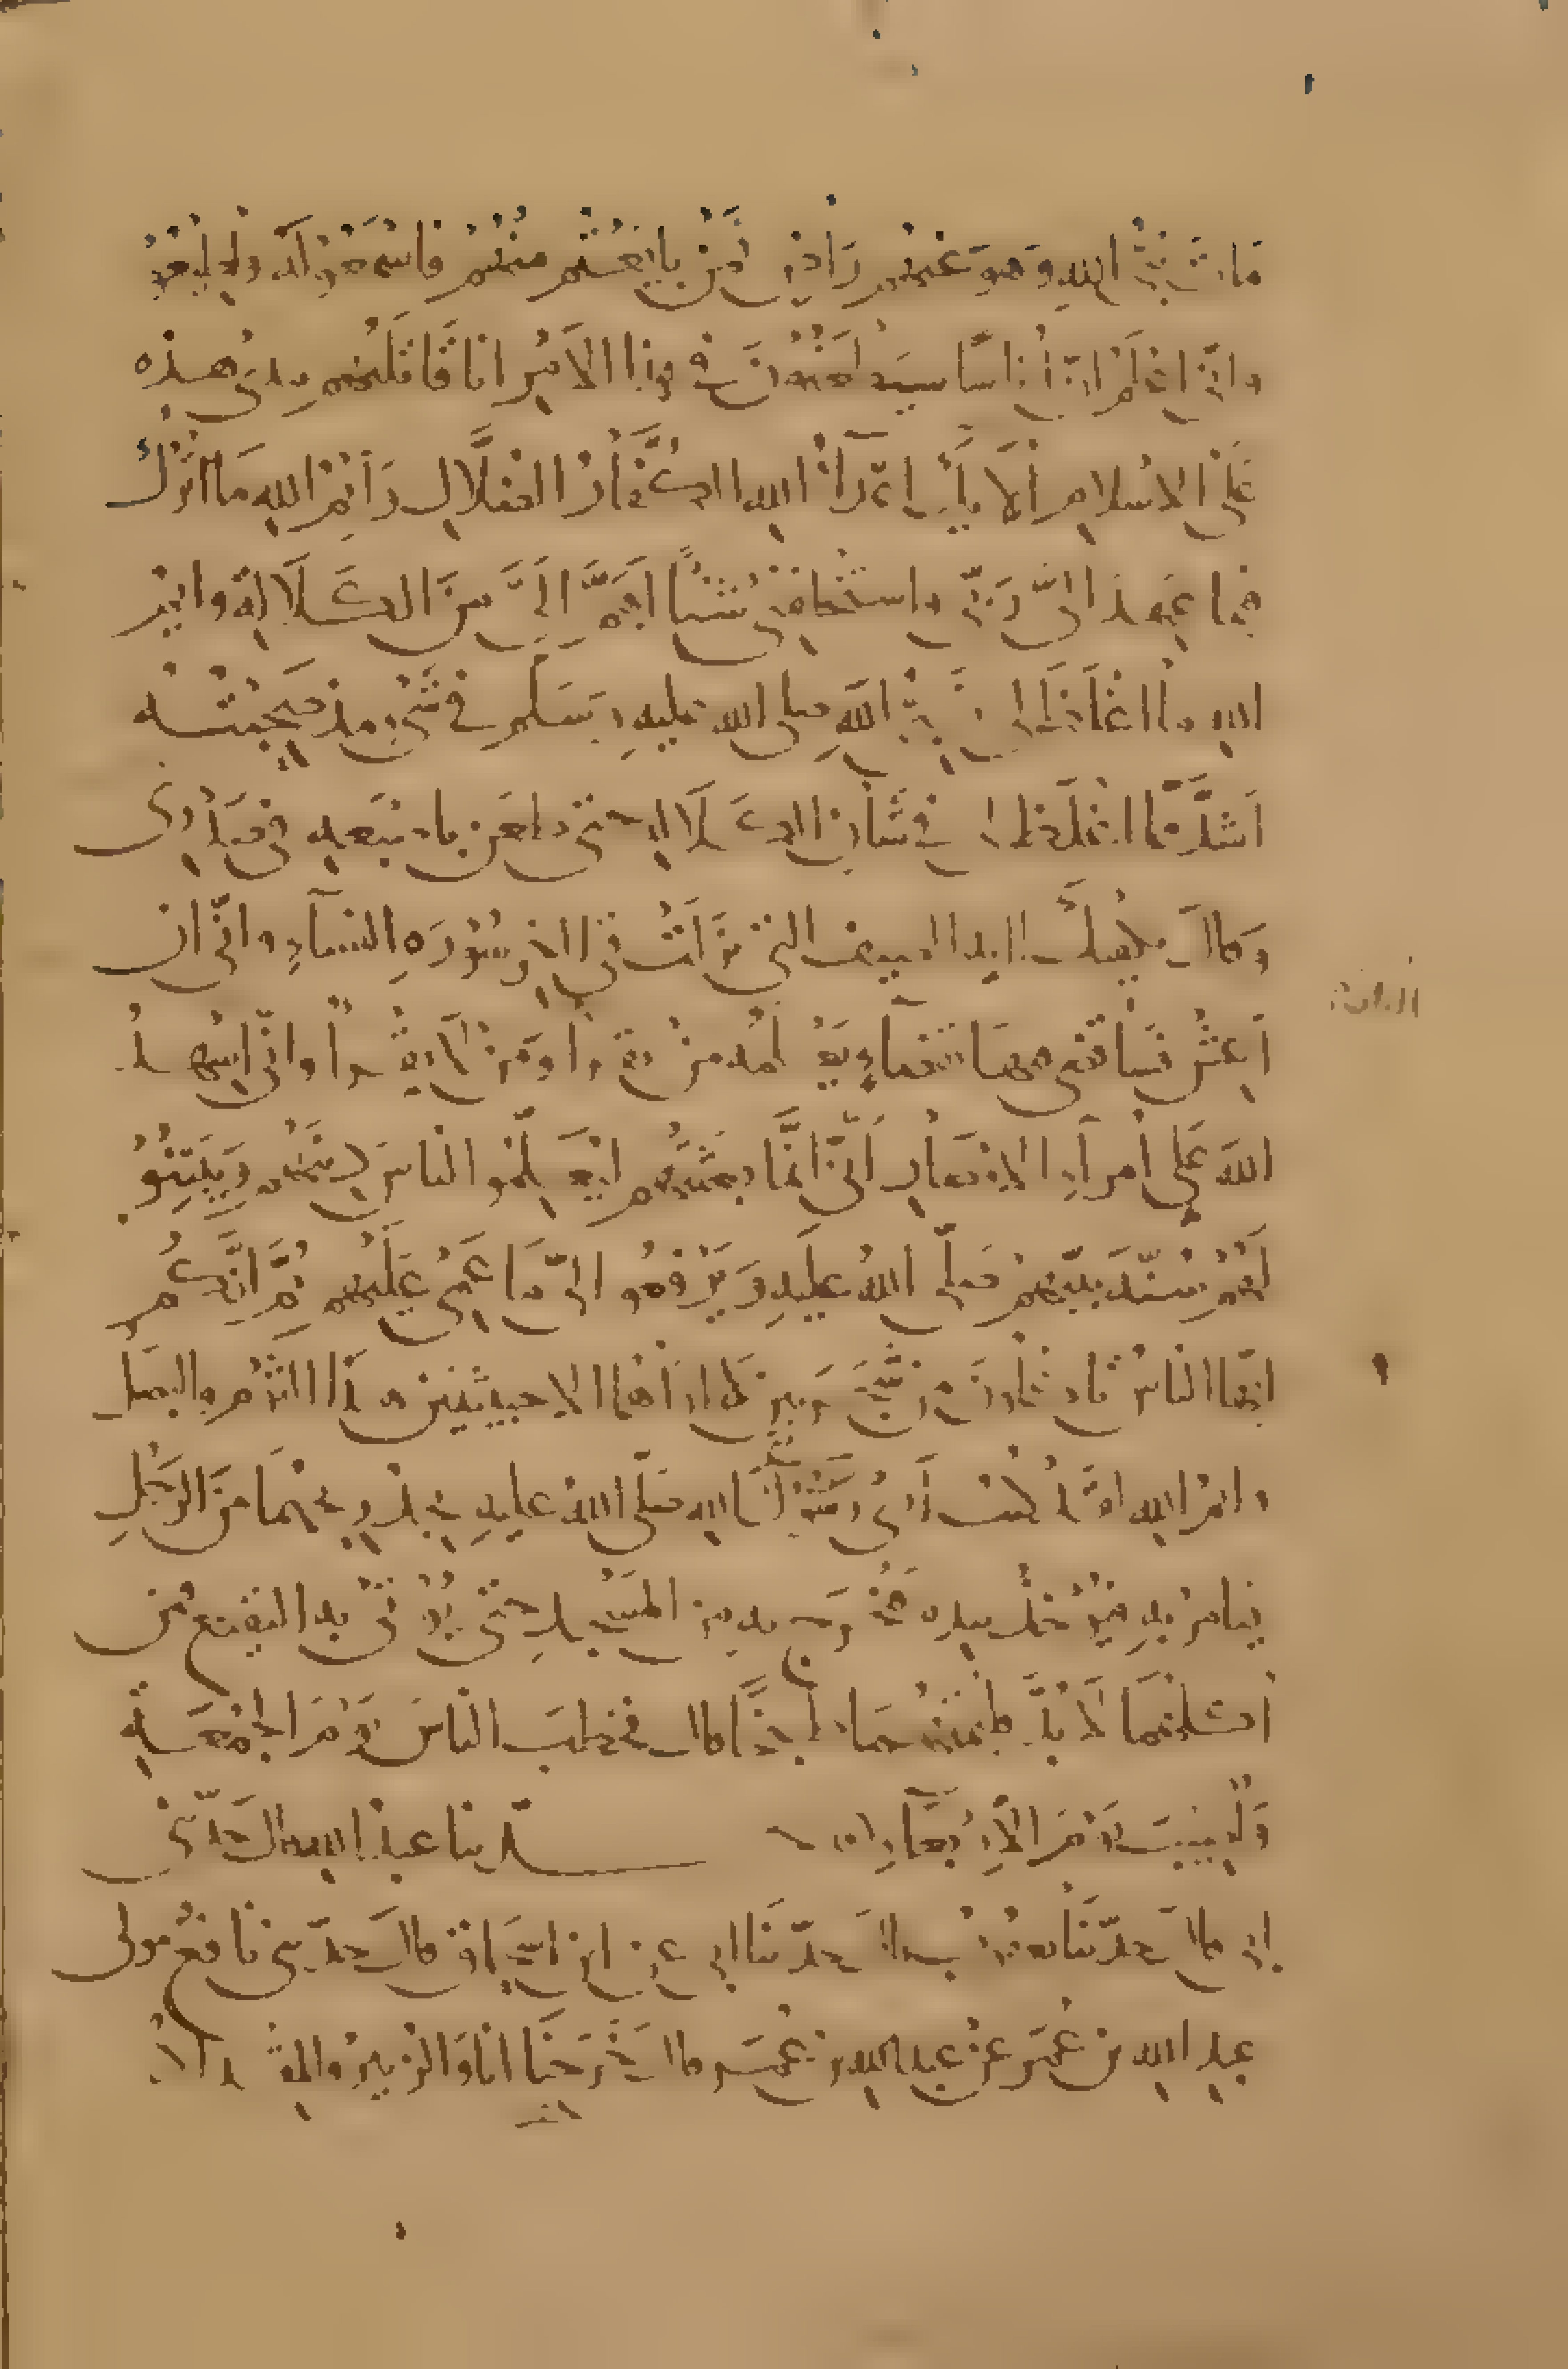 مات نبيُّ اللهِ وهوَ عنهُم رَاضٍ فمَنْ بايَعْتُم منهُم فاسْمَعُوا لَه وأطِيعُوا
واني اعْلَمُ انَّ أُناسًا سيَطعنُونَ في هذا الأمْرِ انا قَاتَلْتُهُم بيدي هذه
عَلَى الإسْلامِ أُولَايِكَ اعْدَاءُ اللهِ الكُفَّارُ الضُلَّالُ وَأيْمُ اللهِ مَا أتْرُكُ
فيما عَهِدَ إليَّ رَبّي واستَخلَفَني شَيْئًا أهَمَّ إلَيَّ مِنَ الكَلَالَةِ وايْمُ
اللهِ ما اغْلَظَ لِي نَبِيُّ اللَّهِ صلى الله عليهِ وسَلَّم في شَيْءٍ منذ صَحِبْتُه
أشَدَّ مَّا اغْلَظَ لِي في شَأْنِ الكَلَالَةِ حتى طعَن باصْبَعِه في صَدْري
وَقالَ تكْفِيكَ اية الصيف التي نَزَلَتْ في اخِرِ سُورَةِ النسَآءِ وانّي ان
أعِشْ فسَأقضِي فيهَا بقضَآءٍ يَعْلمُه مَنْ يَقْرأُ ومَنْ لَا يَقْرأُ وانّي اشْهِدُ
اللهَ عَلَى أُمرآءِ الامْصَارِ أنّي انَّما بعَثْتُهُم ليُعَلِّمُو الناسَ دِينَهُم ويُبَيّنُو
لَهُمْ سُنّةَ نبيّهِمْ صَلَّى اللهُ عليهِ وَيَرْفَعُو اليّ مَا عَمِيَ عَلَيْهِم ثُمَّ انَّكُم
ايّها الناسُ تاكُلُونَ مِنْ شَجَرَتَيْنِ لا ارَاهُما الا خبيثتين هذَا الثُّومُ والبصَلُ
وايْمُ اللهِ لقَدْ كُنتُ أرَى رَسُولَ اللهِ صَلّى اللهُ عليهِ يجِدُ ريحَهُمَا مِنَ الرَجُلِ
فيامُرُ بهِ فيُؤخَذُ بيدِه فَيُخْرَجُ به من المَسْجِدِ حتَّى يُؤْتَى به البَقيعَ فمَن
أكَلَهُمَا لَا بُدَّ فليُمِتْهُمَا طَبْخًا قال فخطَبَ الناسَ يَوْمَ الجُمُعَةِ
وَأُصِيبَ يَوْمَ الأرْبِعَآءِ حدّثنا عبدُ اللهِ قال حَدّثني
ابي قالَ حَدّثَنا يعقوبُ قالَ حَدّثَنا ابي عن ابن اسحَاق قالَ حدّثني نافعٌ مولى
عبدِ اللهِ بن عُمَرَ عَنْ عبدِ اللهِ بن عُمَرَ قالَ خَرَجْنَا انا وَالزُبيرُ والمِقْدَادُ